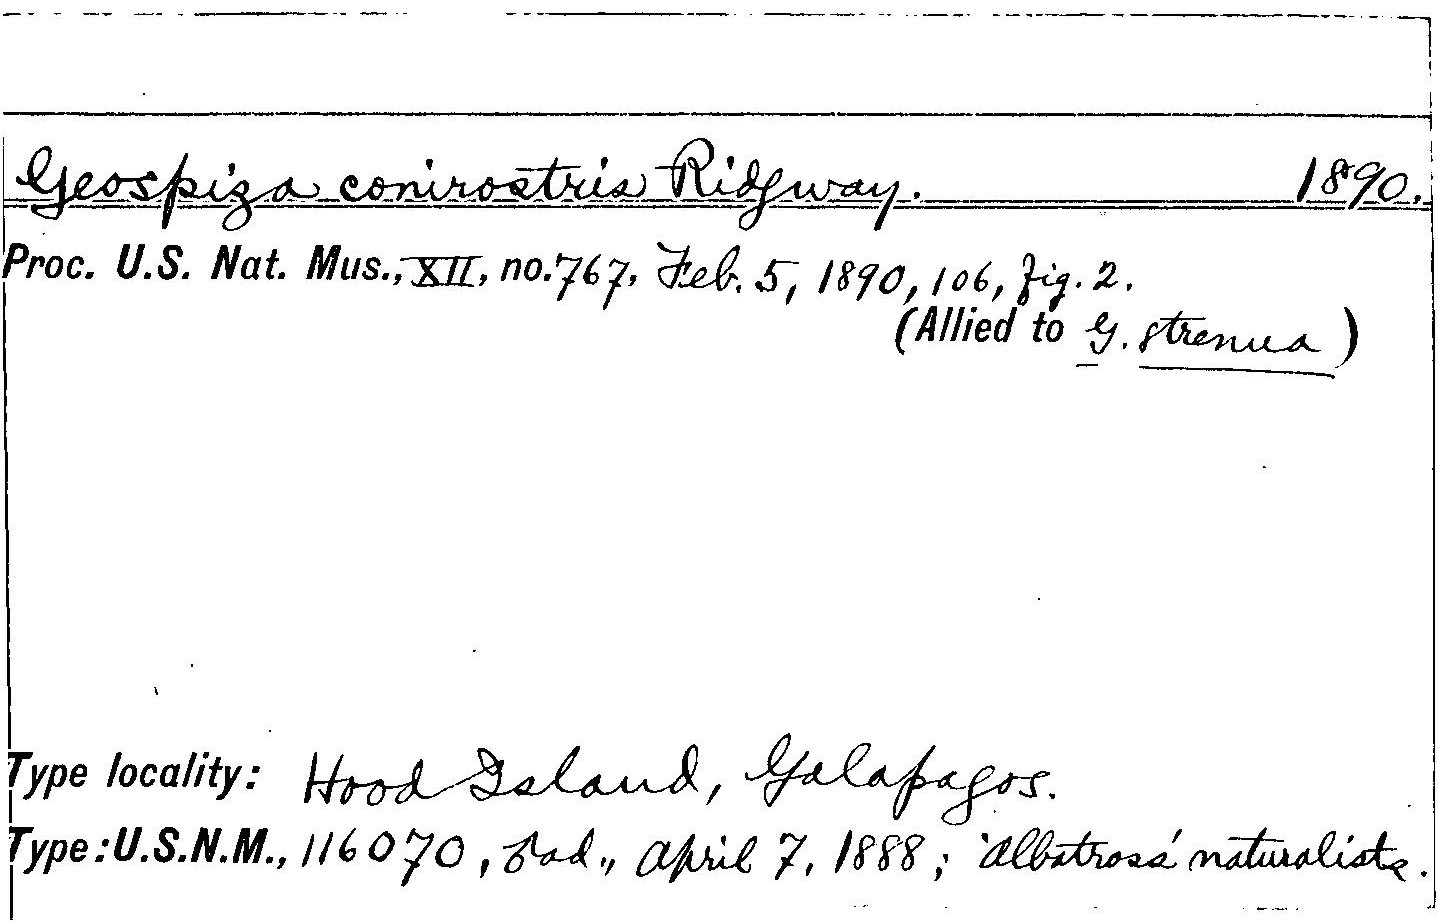 Geospiza conirostris Ridgway. 1890.
Proc. U.S. Nat. Mus., XII, no. 767, Feb. 5, 1890, 106, fig. 2.
(Allied to G. strenua)
Type locality: Hood Island, Galapagos.
Type: U.S.N.M., 116070, ad., April 7, 1888; 'Albatross' naturalists.